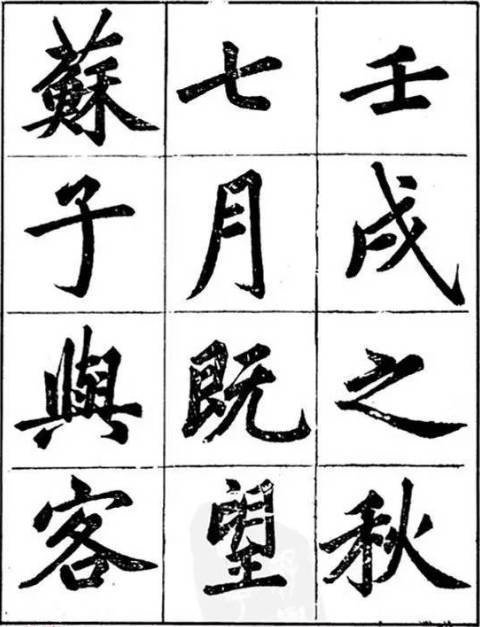 壬戌之秋
七月既望
蘇子與客